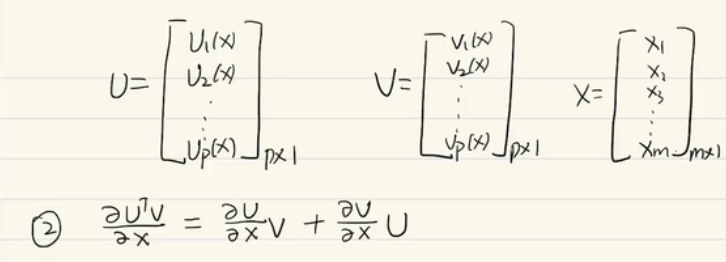 U = [U₁(x) U₂(x) ⋮ Up(x)]p×1 V = [V₁(x) V₂(x) ⋮ Vp(x)]p×1 X = [x₁ x₂ x₃ ⋮ xm]m×1
② ∂UᵀV/∂x = ∂U/∂x V + ∂V/∂x U